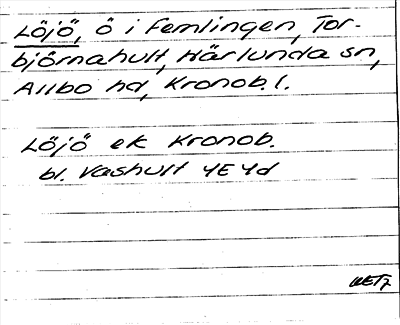 Löjö, ö i Femlingen, Tor-
björnahult, Härlunda sn,
Allbo hd, Kronob. l.
Löjö ek Kronob.
bl. Vashult 4E 4d